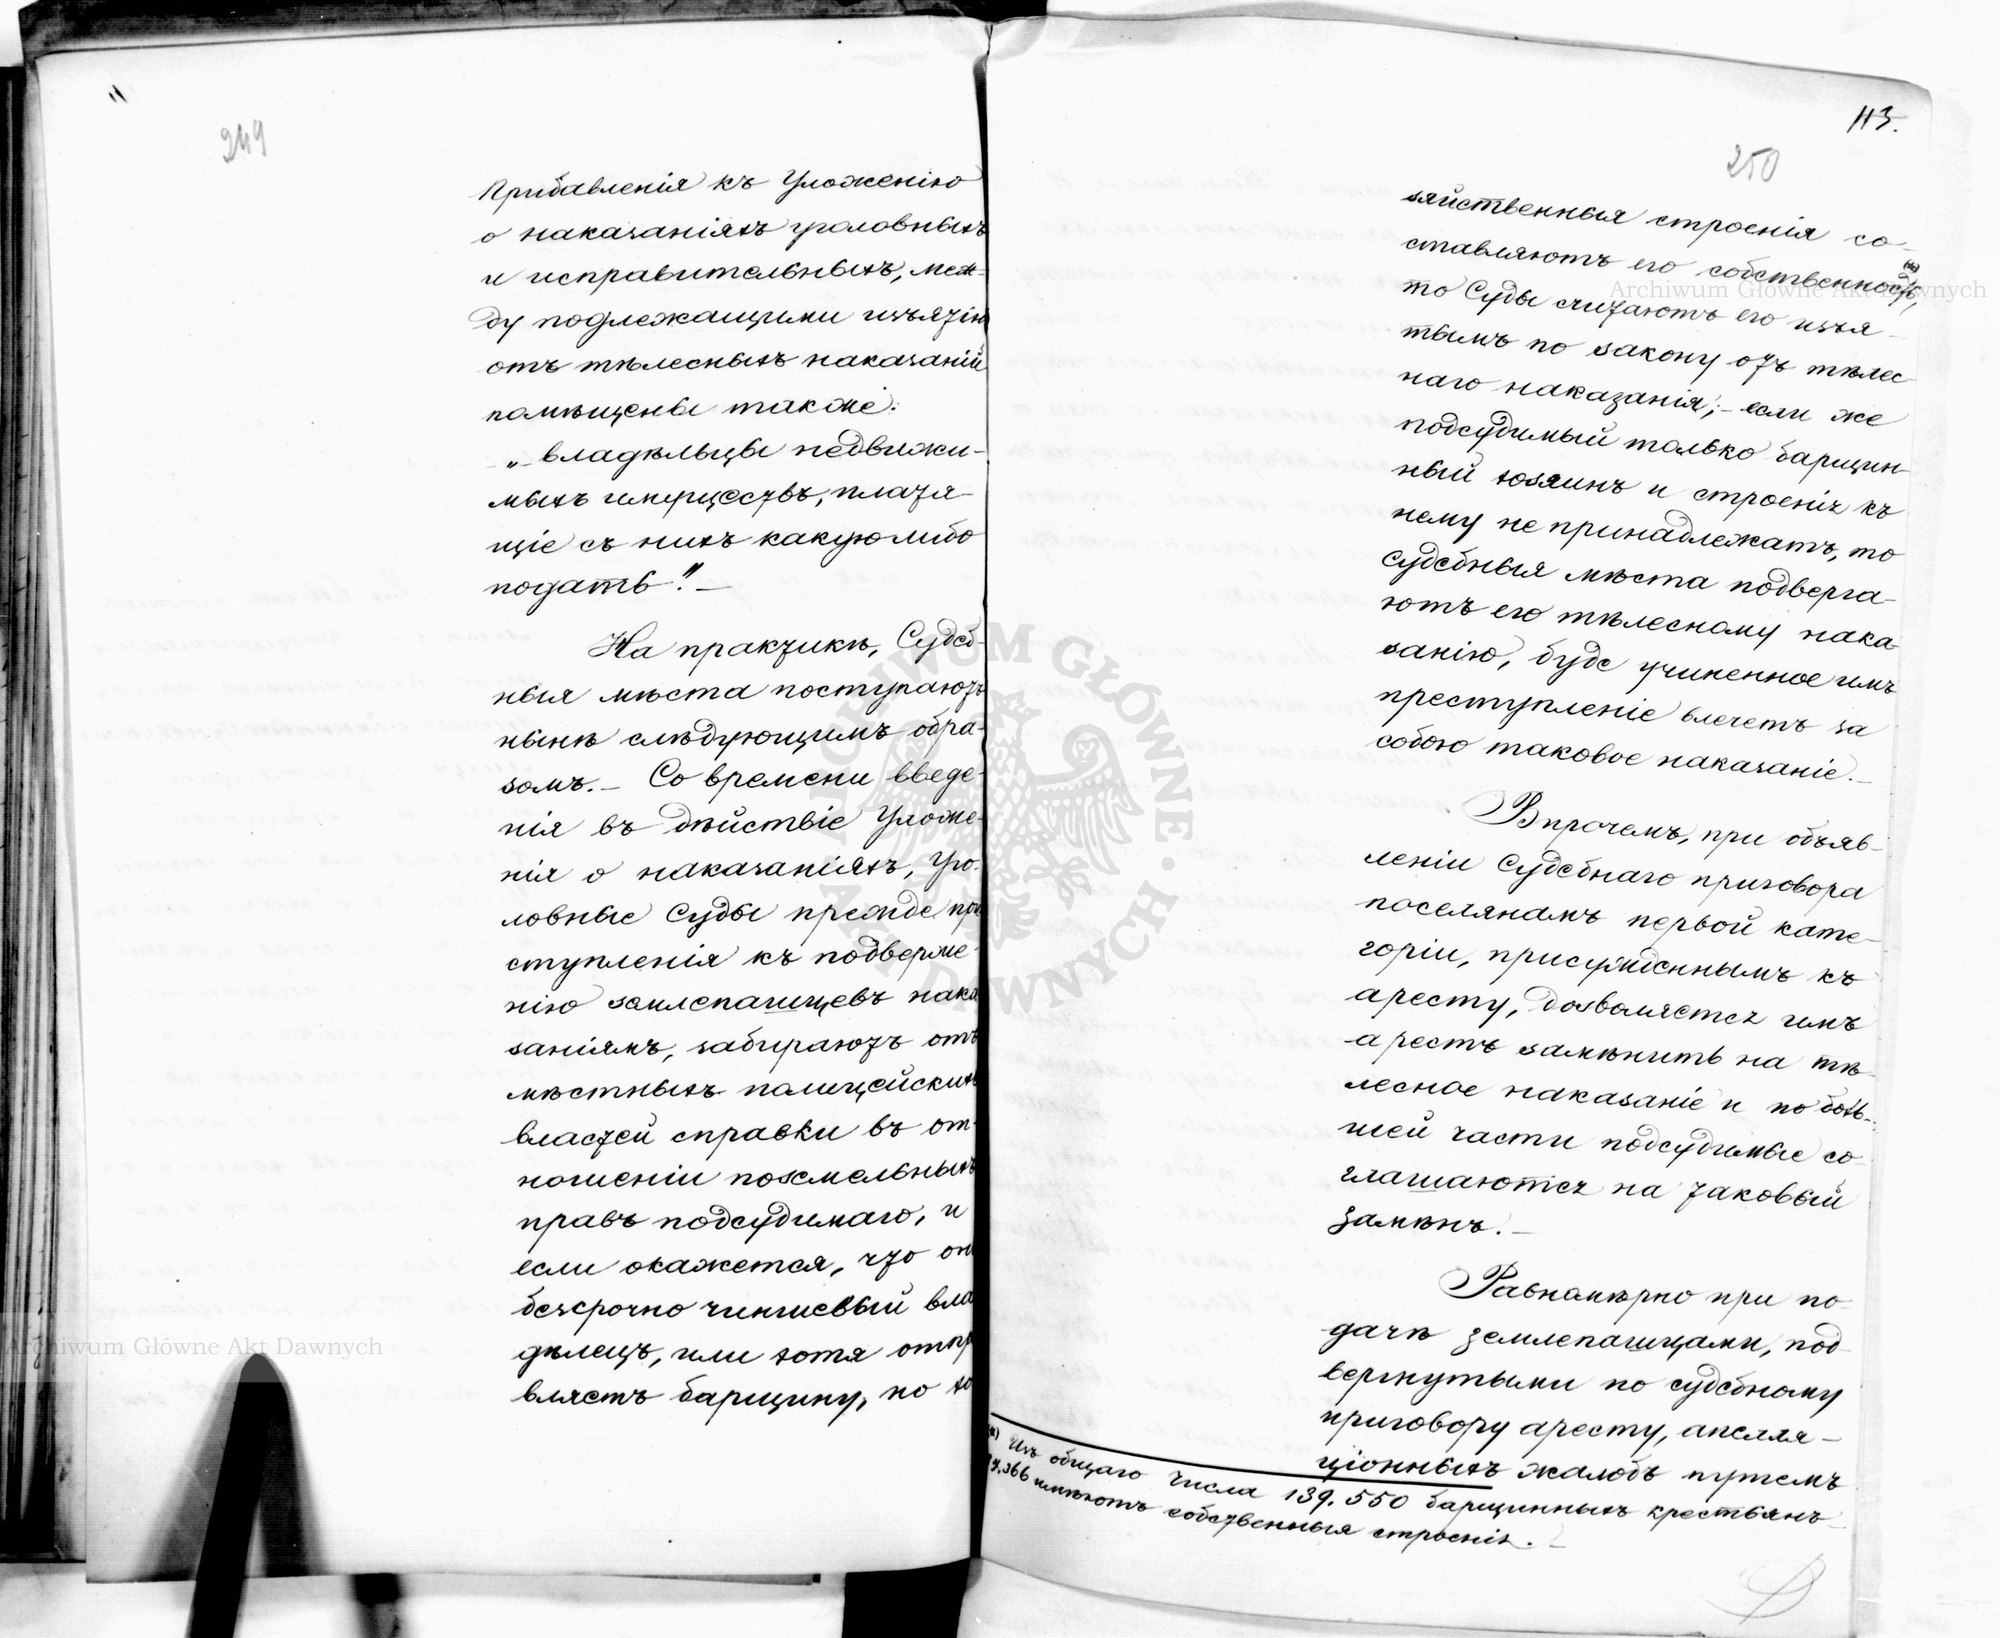 249
Прибавленія къ Уложенію
о наказаніяхъ уголовныхъ
и исправительныхъ, меж-
ду подлежащими изъятію
отъ тѣлесныхъ наказаній
помѣщены также:
„владѣльцы недвижи-
мыхъ имуществъ, платя-
щіе съ нихъ какую либо
подать". —
На практикѣ, Судеб-
ныя мѣста поступаютъ
нынѣ слѣдующимъ обра-
зомъ. — Со времени введе-
нія въ дѣйствіе Уложе-
нія о наказаніяхъ, Уго-
ловные Суды прежде при
ступленія къ подверже-
нію землепашцевъ нака
заніямъ, забираютъ отъ
мѣстныхъ полицейскихъ
властей справки въ от-
ношеніи поземельныхъ
правъ подсудимаго, и
если окажется, что он
безсрочно чиншевый вла
дѣлецъ, или хотя отпр
вляетъ барщину, но хо
113.
250
зяйственныя строенія со-
ставляютъ его собственность (*),
то Суды считаютъ его изъя-
тымъ по закону отъ тѣлес-
наго наказанія; — если же
подсудимый только барщин-
ный хозяинъ и строенія къ
нему не принадлежатъ, то
Судебныя мѣста подверга-
ютъ его тѣлесному нака-
занію, буде учиненное имъ
преступленіе влечетъ за
собою таковое наказаніе. —
Впрочемъ, при объяв-
леніи Судебнаго приговора
поселянамъ первой кате-
горіи, присужденнымъ къ
аресту, дозволяется имъ
арестъ замѣнить на тѣ-
лесное наказаніе и по боль-
шей части подсудимые со-
глашаются на таковый
замѣнъ. —
Равномѣрно при по-
дачѣ землепашцами, под-
вергнутыми по судебному
приговору аресту, апелля-
ціонныхъ жалобъ путемъ
(*) Изъ общаго числа 139.550 барщинныхъ крестьянъ
имѣютъ собственныя строенія. —
Archiwum Główne Akt Dawnych
Archiwum Główne Akt Dawnych
ARCHIWUM GŁÓWNE AKT DAWNYCH